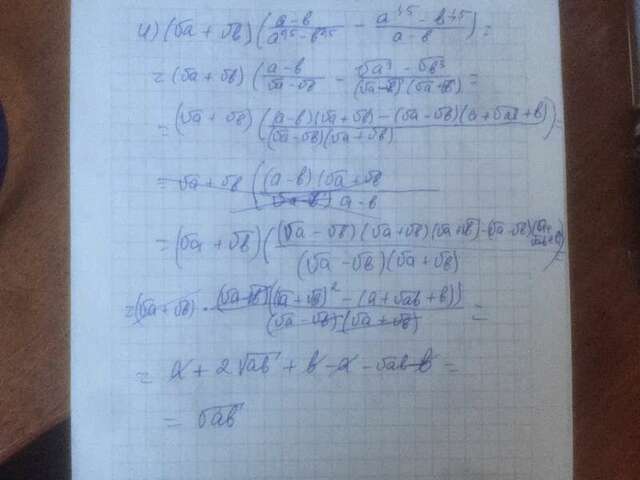 4) (√a + √b) ( (a-b)/(a^0,5 - b^0,5) - (a^1,5 - b^1,5)/(a-b) ) =
= (√a + √b) ( (a-b)/(√a - √b) - (√a³ - √b³)/((√a - b)(√a + b)) =
= (√a + √b) ( ((a-b)(√a + √b) - (√a - √b)(a + √ab + b))/((√a - √b)(√a + √b)) ) =
= √a + √b ( ((a-b)(√a + √b)/((√a - b) a-b)
= (√a + √b) ( ((√a - √b)(√a + √b)(√a + √b) - √a - √b)(a + √ab + b)/((√a - √b)(√a + √b)) ) =
= (√a + √b) · (√a - √b)((√a + √b)² - (a + √ab + b))/((√a - √b)(√a + √b)) =
= a + 2√ab + b - a - √ab - b =
= √ab